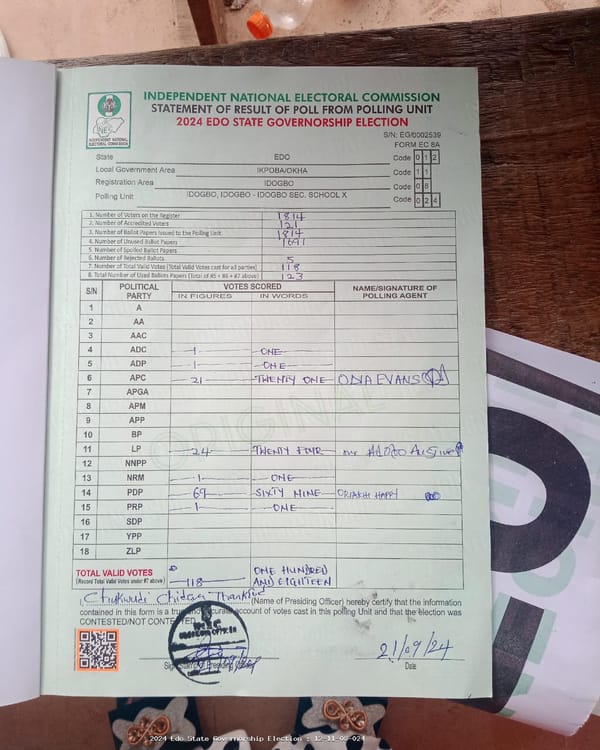 INDEPENDENT NATIONAL ELECTORAL COMMISSION
STATEMENT OF RESULT OF POLL FROM POLLING UNIT
2024 EDO STATE GOVERNORSHIP ELECTION
INEC
INDEPENDENT NATIONAL ELECTORAL COMMISSION
S/N: EG/0002539
FORM EC 8A
State EDO Code 0 1 2
Local Government Area IKPOBA/OKHA Code 1 1
Registration Area IDOGBO Code 0 8
Polling Unit IDOGBO, IDOGBO - IDOGBO SEC. SCHOOL X Code 0 2 4
1. Number of Voters on the Register 1814
2. Number of Accredited Voters 121
3. Number of Ballot Papers Issued to the Polling Unit 1814
4. Number of Unused Ballot Papers 1691
5. Number of Spoiled Ballot Papers
6. Number of Rejected Ballots 5
7. Number of Total Valid Votes (Total Valid Votes cast for all parties) 118
8. Total Number of Used Ballots Papers (Total of #5 + #6 + #7 above) 123
S/N POLITICAL PARTY VOTES SCORED NAME/SIGNATURE OF POLLING AGENT
IN FIGURES IN WORDS
1 A
2 AA
3 AAC
4 ADC 1 ONE
5 ADP 1 ONE
6 APC 21 TWENTY ONE ODIA EVANS
7 APGA
8 APM
9 APP
10 BP
11 LP 24 TWENTY FOUR
12 NNPP
13 NRM 1 ONE
14 PDP 69 SIXTY NINE ORIAKHI HAPPY
15 PRP 1 ONE
16 SDP
17 YPP
18 ZLP
ORIGINAL
TOTAL VALID VOTES
(Record Total Valid Votes under #7 above) 118 ONE HUNDRED AND EIGHTEEN
I, Chukwudi (Name of Presiding Officer) hereby certify that the information
contained in this form is a true and accurate account of votes cast in this polling Unit and that the election was
CONTESTED/NOT CONTESTED
21/09/24
Date
2024 Edo State Governorship Election :